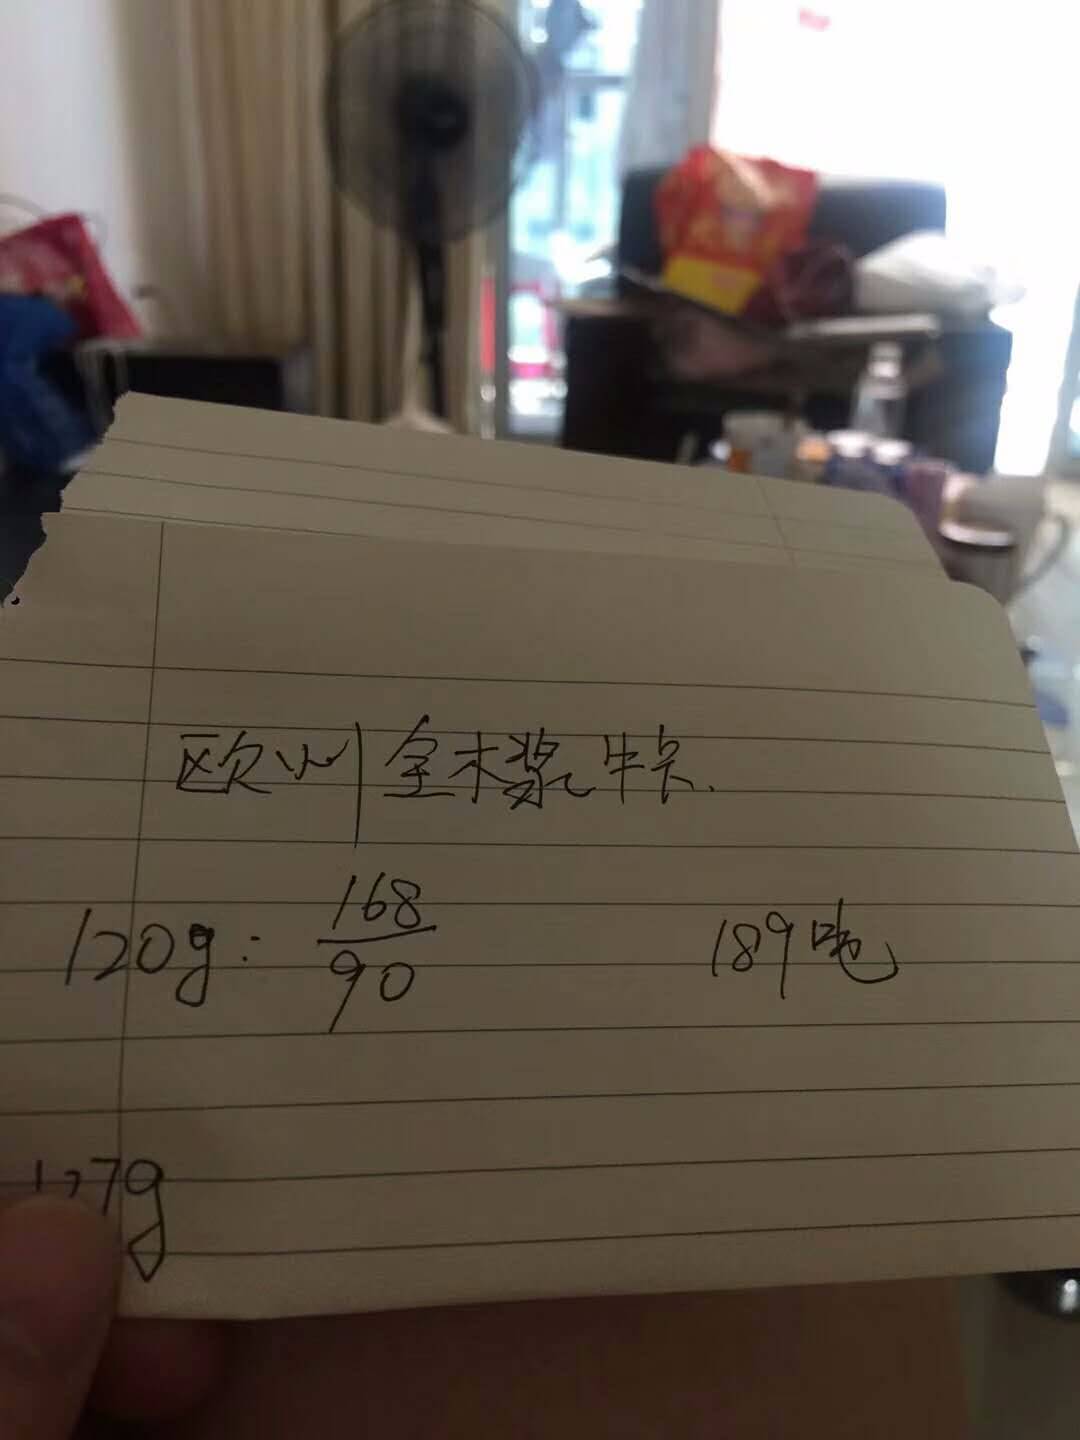 欧州全木浆牛卡.
120g: 168/90 189吨
7g